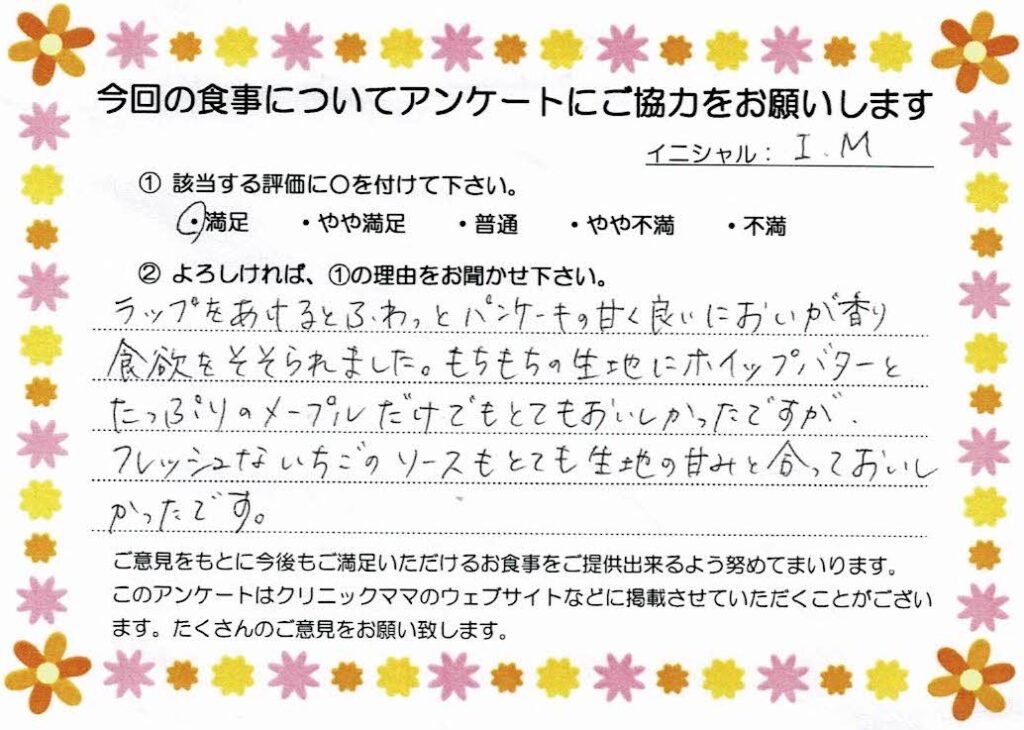 今回の食事についてアンケートにご協力をお願いします
イニシャル： I.M
① 該当する評価に〇を付けて下さい。
・満足 ・やや満足 ・普通 ・やや不満 ・不満
② よろしければ、①の理由をお聞かせ下さい。
ラップをあけるとふわっとパンケーキの甘く良いにおいが香り
食欲をそそられました。もちもちの生地にホイップバターと
たっぷりのメープルだけでもとてもおいしかったですが、
フレッシュないちごのソースもとても生地の甘みと合っておいし
かったです。
ご意見をもとに今後もご満足いただけるお食事をご提供出来るよう努めてまいります。
このアンケートはクリニックママのウェブサイトなどに掲載させていただくことがござい
ます。たくさんのご意見をお願い致します。